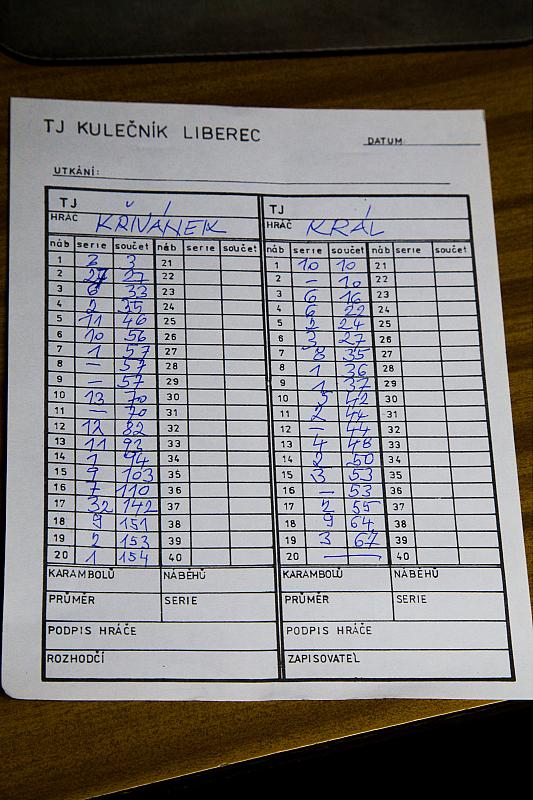 TJ KULEČNÍK LIBEREC
DATUM
UTKÁNÍ:
TJ TJ
HRÁČ KŘIVÁNEK HRÁČ KRÁL
náb serie součet náb serie součet náb serie součet náb serie součet
1 3 3 21 1 10 10 21
2 24 27 22 2 – 10 22
3 6 33 23 3 6 16 23
4 2 35 24 4 6 22 24
5 11 46 25 5 2 24 25
6 10 56 26 6 3 27 26
7 1 57 27 7 8 35 27
8 – 57 28 8 1 36 28
9 – 57 29 9 1 37 29
10 13 70 30 10 5 42 30
11 – 70 31 11 2 44 31
12 12 82 32 12 – 44 32
13 11 93 33 13 4 48 33
14 1 94 34 14 2 50 34
15 9 103 35 15 3 53 35
16 7 110 36 16 – 53 36
17 32 142 37 17 2 55 37
18 9 151 38 18 9 64 38
19 2 153 39 19 3 67 39
20 1 154 40 20 — 40
KARAMBOLŮ NÁBĚHŮ KARAMBOLŮ NÁBĚHŮ
PRŮMĚR SERIE PRŮMĚR SERIE
PODPIS HRÁČE PODPIS HRÁČE
ROZHODČÍ ZAPISOVATEL